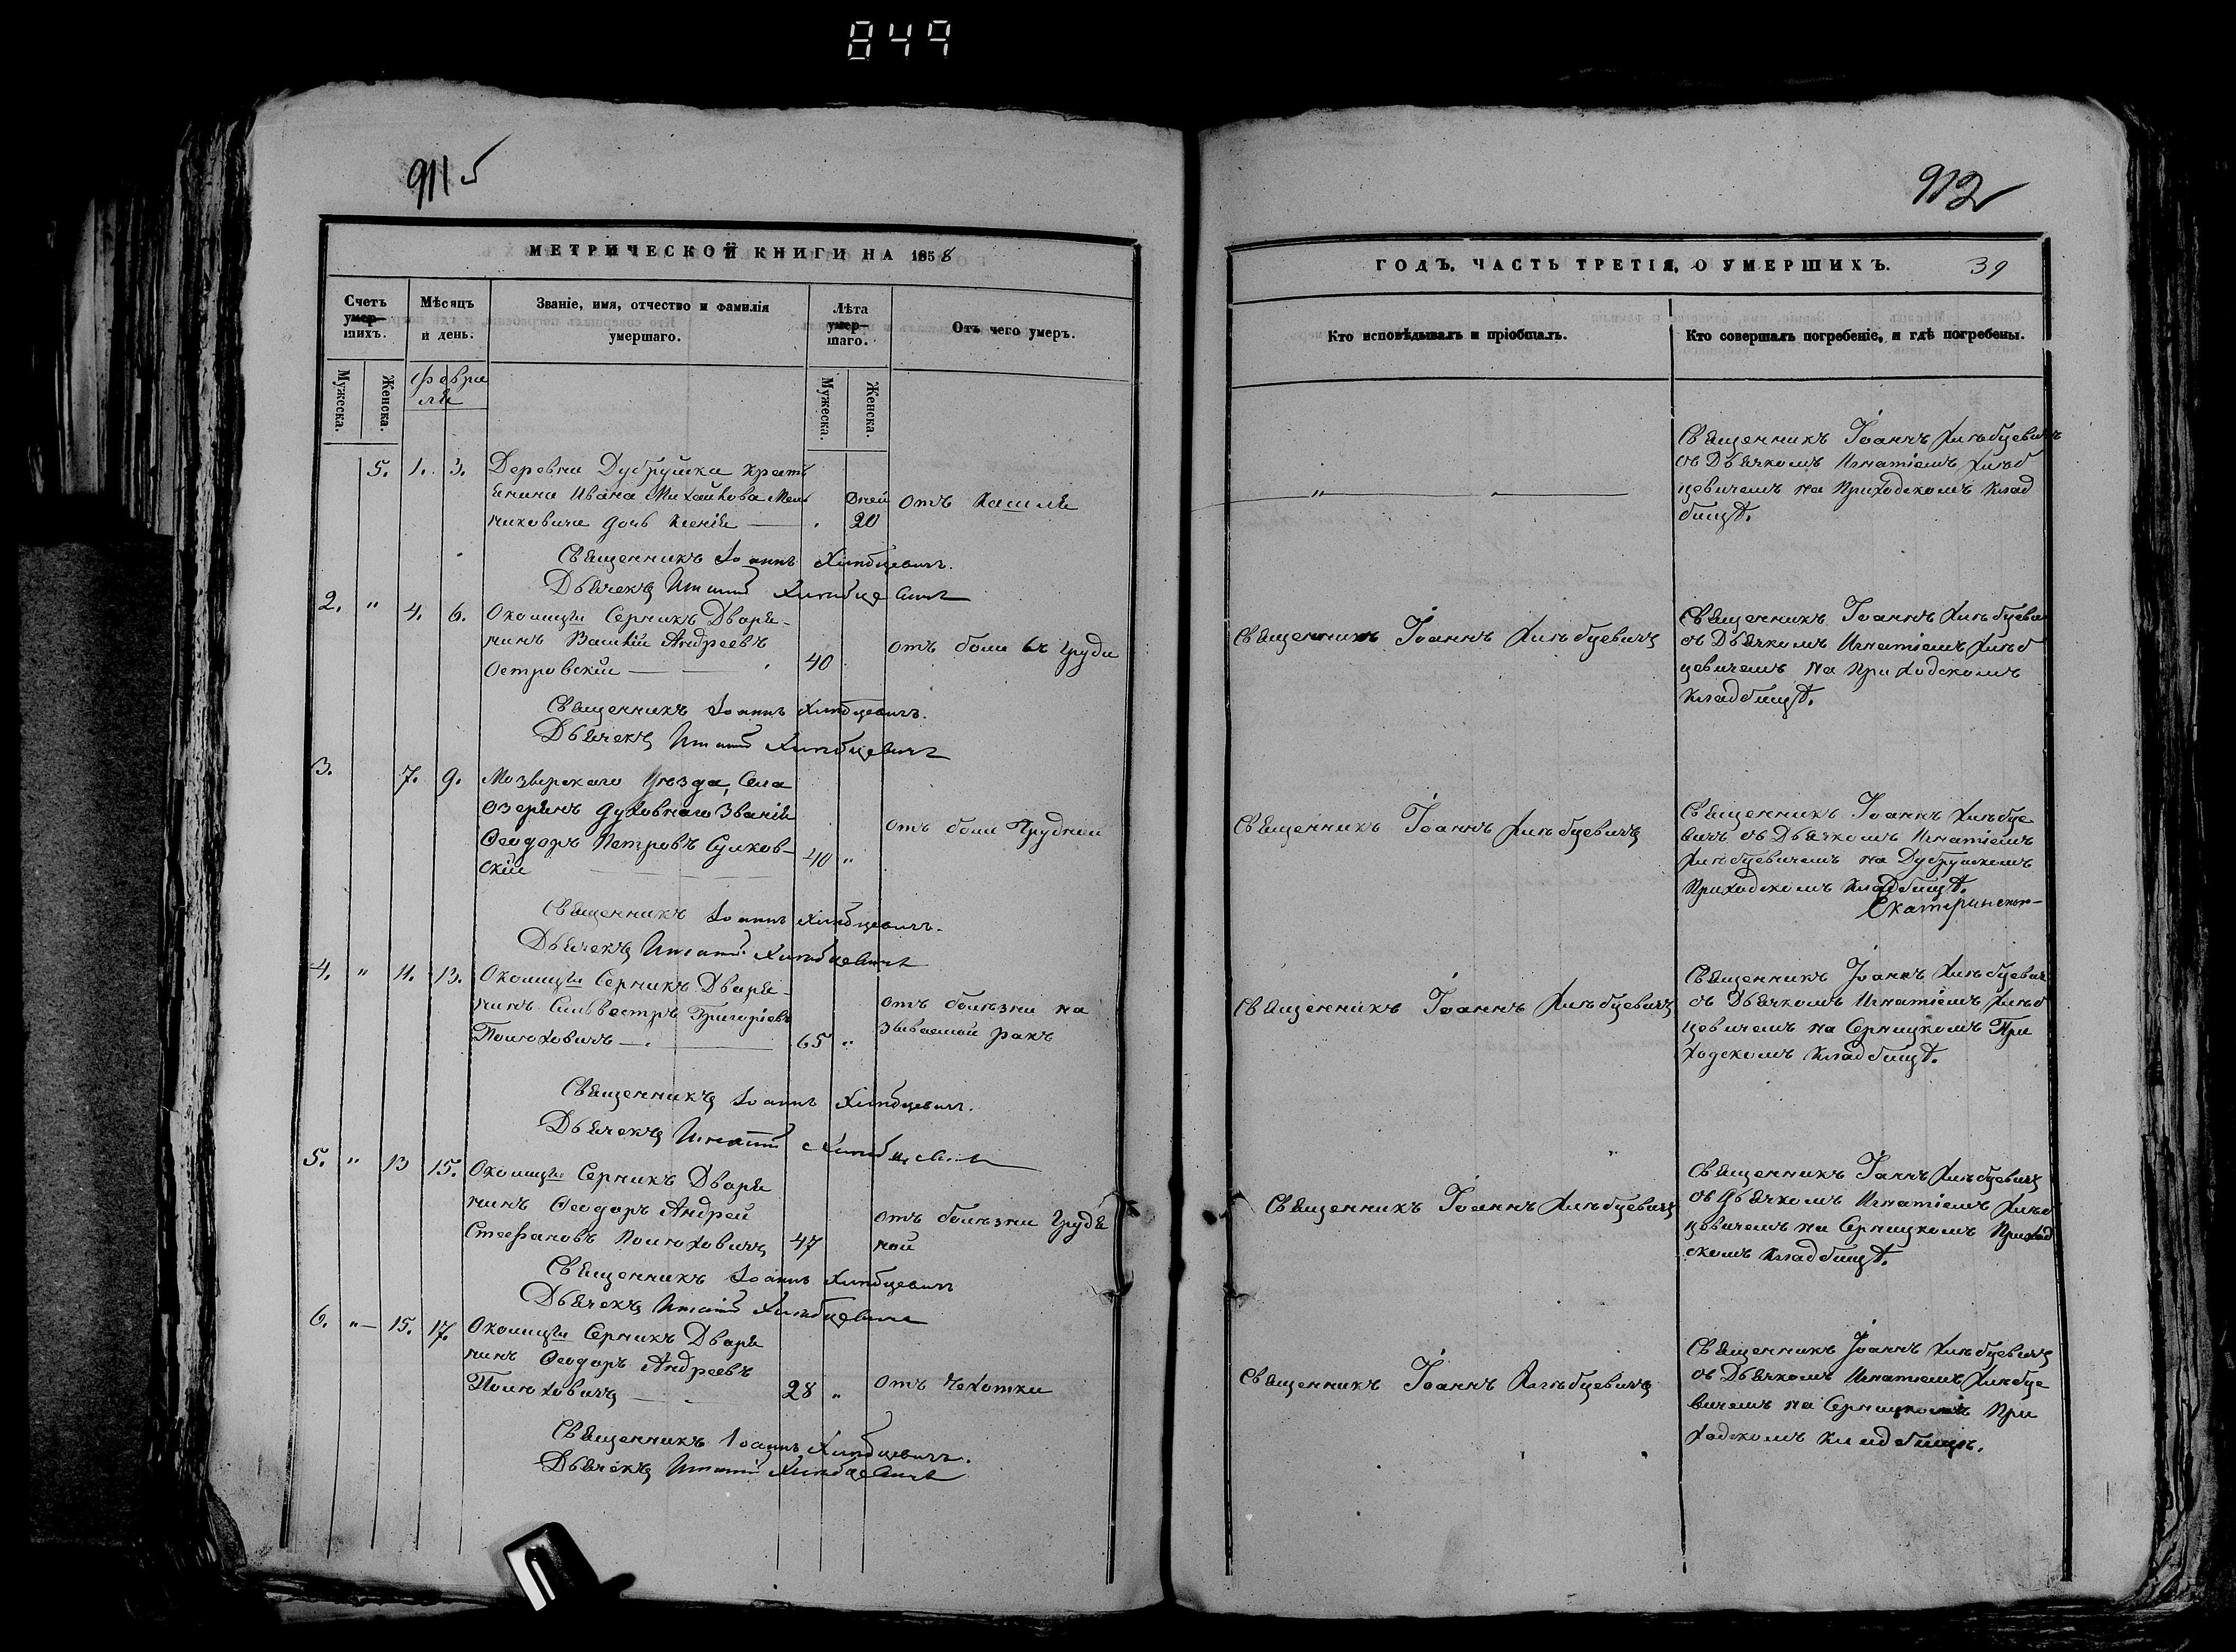 849
911
912
МЕТРИЧЕСКОЙ КНИГИ НА 1858
Счетъ умер-
шихъ.
Мѣсяцъ
и день.
Званіе, имя, отчество и фамилія
умершаго.
Лѣта
умер-
шаго.
Отъ чего умеръ.
Мужеска.
Женска.
Февра
ля
Мужеска.
Женска.
5. 1. 3. Деревни Дубрушка Крестъ
янина Ивана Михайлова Мель
никовича дочь Ксенія
дней
20
отъ Кашля
Священникъ Іоаннъ Хлѣбцевичъ.
Дьячекъ Игнатій Хлѣбцевичъ
2. " 4. 6. Околицы Серникъ Дворя-
нинъ Василій Андреевъ
Островскій 40
отъ боли въ груди
Священникъ Іоаннъ Хлѣбцевичъ.
Дьячекъ Игнатій Хлѣбцевичъ
3. 7. 9. Мозырскаго Уѣзда, Села
Озеранъ духовнаго Званія
Ѳеодоръ Петровъ Сулков-
скій 40 "
отъ боли Грудной
Священникъ Іоаннъ Хлѣбцевичъ.
Дьячекъ Игнатій Хлѣбцевичъ
4. " 11. 13. Околицы Серникъ Дворя-
нинъ Сильвестръ Григоріевъ
Полюховичъ 65 "
отъ болѣзни на
зываемой ракъ
Священникъ Іоаннъ Хлѣбцевичъ.
Дьячекъ Игнатій Хлѣбцевичъ
5. " 13 15. Околицы Серникъ Дворя
нинъ Ѳеодоръ Андрей
Стефановъ Полюховичъ 47
отъ болѣзни Грудя
ной
Священникъ Іоаннъ Хлѣбцевичъ
Дьячекъ Игнатій Хлѣбцевичъ
6. " 15. 17. Околицы Серникъ Дворя
нинъ Ѳеодоръ Андреевъ
Полюховичъ 28 "
отъ Чехотки
Священникъ Іоаннъ Хлѣбцевичъ.
Дьячекъ Игнатій Хлѣбцевичъ
ГОДЪ, ЧАСТЬ ТРЕТІЯ, О УМЕРШИХЪ. 39
Кто исповѣдывалъ и пріобщалъ.
Кто совершалъ погребеніе, и гдѣ погребены.
"
Священникъ Іоаннъ Хлѣбцевичъ
съ Дьячкомъ Игнатіемъ Хлѣб
цевичемъ на Приходскомъ Клад
бищѣ.
Священникъ Іоаннъ Хлѣбцевичъ
Священникъ Іоаннъ Хлѣбцеви
съ Дьячкомъ Игнатіемъ Хлѣб
цевичемъ на Приходскомъ
Кладбищѣ.
Священникъ Іоаннъ Хлѣбцевичъ
Священникъ Іоаннъ Хлѣбце
вичъ съ Дьячкомъ Игнатіемъ
Хлѣбцевичемъ на Дубрушскомъ
Приходскомъ Кладбищѣ.
Екатеринском-
Священникъ Іоаннъ Хлѣбцевичъ
Священникъ Іоаннъ Хлѣбцевич
съ Дьячкомъ Игнатіемъ Хлѣб
цевичемъ на Серницкомъ При
ходскомъ Кладбищѣ.
Священникъ Іоаннъ Хлѣбцевичъ
Священникъ Іаннъ Хлѣбцевичъ
съ Дьячкомъ Игнатіемъ Хлѣб
цевичемъ на Серницкомъ Приход
скомъ Кладбищѣ.
Священникъ Іоаннъ Хлѣбцевичъ
Священникъ Іоаннъ Хлѣбцевичъ
съ Дьячкомъ Игнатіемъ Хлѣбце
вичемъ на Серницкомъ При
ходскомъ Кладбищѣ.